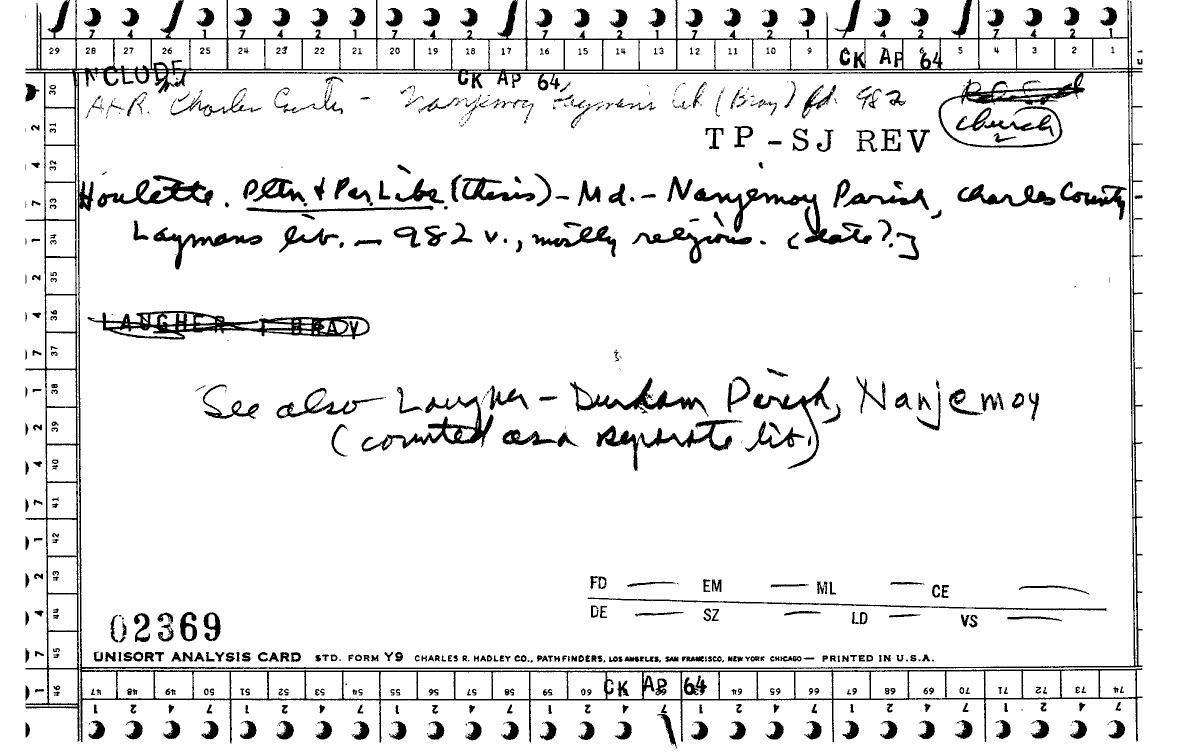 7 4 2 1 7 4 2 1 7 4 2 1 7 4 2 1 7 4 2 1 7 4 2 1 7 4 2 1
29 28 27 26 25 24 23 22 21 20 19 18 17 16 15 14 13 12 11 10 9 8 7 6 5 4 3 2 1
CK AP 64
INCLUDE
CK AP 64
Charles Nanjemoy Laymens (Bray) 982
church
TP-SJ REV
Houlette. Pltn & Par Libs (thesis) - Md. - Nanjemoy Parish, Charles County -
Laymans lib. - 982 v., mostly religious. [date?]
LAUGHER T BRAY
See also Laugher - Durham Parish, Nanjemoy
(counted as a separate lib.)
FD EM ML CE
DE SZ LD VS
02369
UNISORT ANALYSIS CARD STD. FORM Y9 CHARLES R. HADLEY CO., PATHFINDERS, LOS ANGELES, SAN FRANCISCO, NEW YORK CHICAGO — PRINTED IN U.S.A.
CK AP 64
30 31 32 33 34 35 36 37 38 39 40 41 42 43 44 45 46
47 48 49 50 51 52 53 54 55 56 57 58 59 60 61 64 65 66 67 68 69 70 71 72 73 74